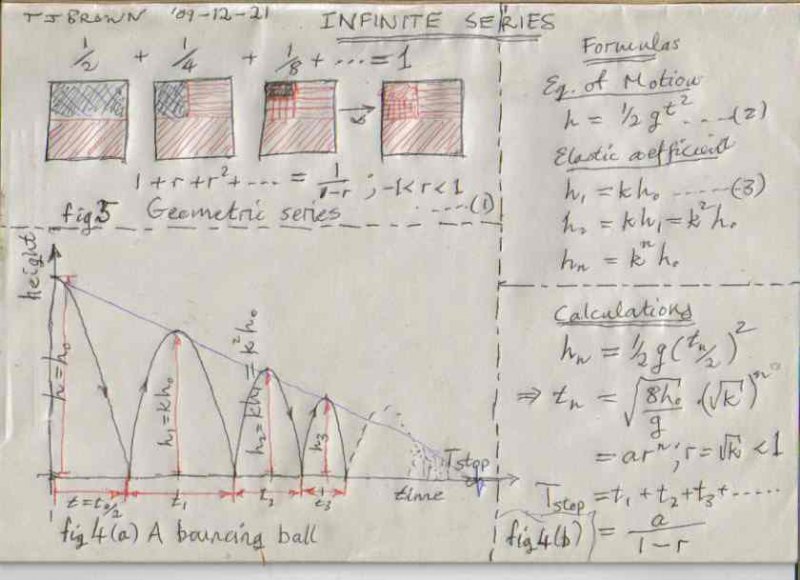 TJ BROWN '09-12-21 INFINITE SERIES
1/2 + 1/4 + 1/8 + .... = 1
1 + r + r² + .... = 1/(1-r) ; -1 < r < 1
....(1)
fig 3 Geometric series
Formulas
Eq. of Motion
h = 1/2 g t² ....(2)
Elastic coefficient
h₁ = k h₀ ......(3)
h₂ = k h₁ = k² h₀
hₙ = kⁿ h₀
height
h = h₀
h₁ = kh₀
h₂ = kh₁ = k² h₀
h₃
Tstop
t = t₀/2 t₁ t₂ t₃ time
fig 4(a) A bouncing ball
Calculations
hₙ = 1/2 g (tₙ/2)²
⇒ tₙ = √(8h₀/g) · (√k)ⁿ
= arⁿ ; r = √k < 1
Tstop = t₁ + t₂ + t₃ + .....
fig 4(b) = a/(1-r)